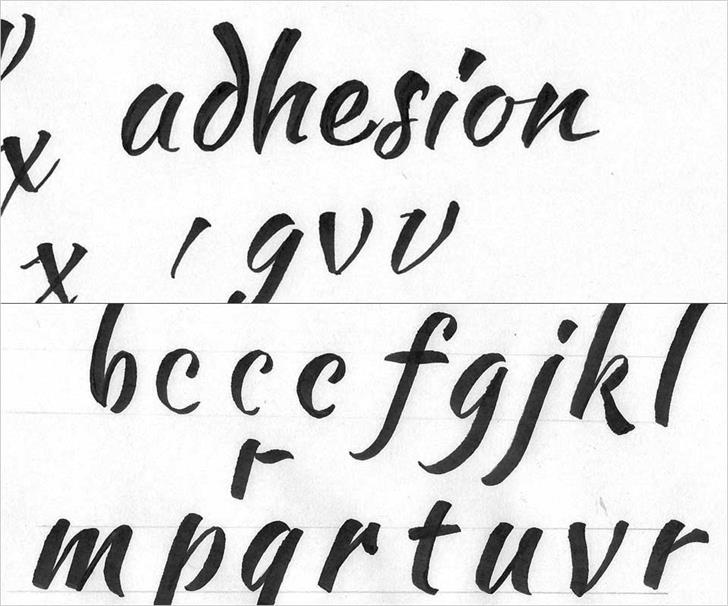 v
adhesion
x
x g v v
b c c c f g j k l
r
m p q r t u v r